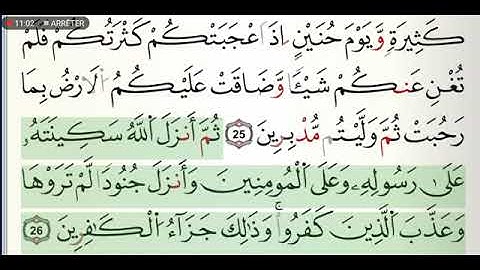 11:02 ARRÊTER
كَثِيرَةٍ وَّيَوْمَ حُنَيْنٍ اِذَ اَعْجَبَتْكُمْ كَثْرَتُكُمْ فَلَمْ
تُغْنِ عَنكُمْ شَيْـًٔا وَّضَاقَتْ عَلَيْكُمُ اُلَارْضُ بِمَا
رَحُبَتْ ثُمَّ وَلَّيْتُم مُّدْبِرِينَ 25 ثُمَّ أَنزَلَ اَللَّهُ سَكِينَتَهُۥ
عَلَىٰ رَسُولِهِۦ وَعَلَى اَلْمُومِنِينَ وَأَنزَلَ جُنُودًا لَّمْ تَرَوْهَا
وَعَذَّبَ اَلذِينَ كَفَرُواْۖ وَذَٰلِكَ جَزَآءُ اُلْكَٰفِرِينَ 26